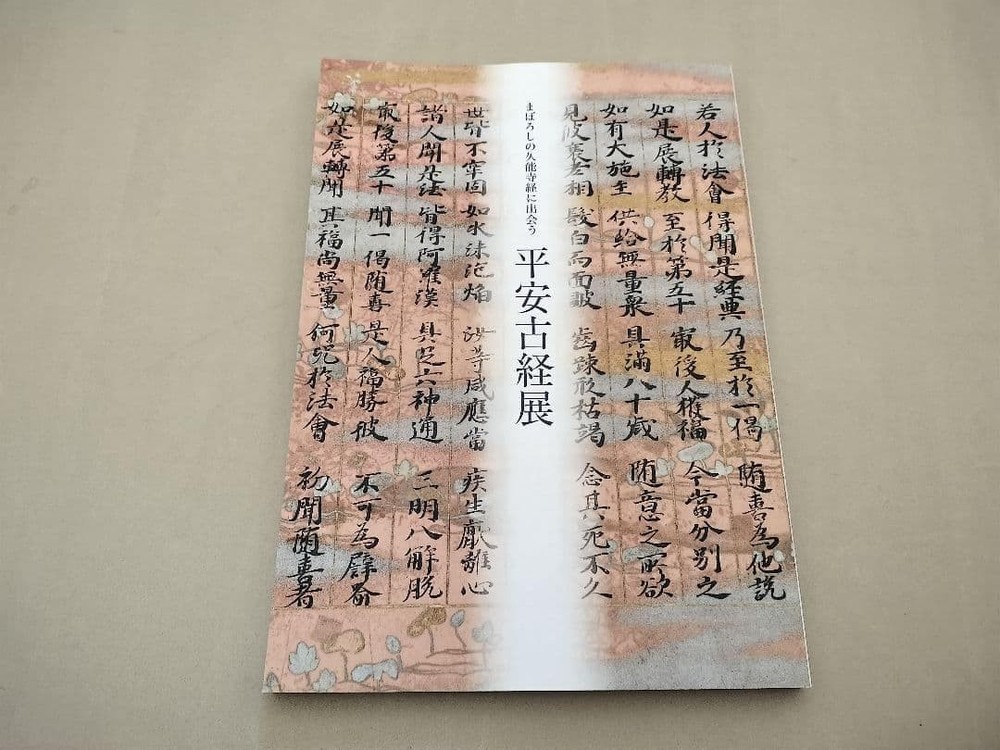 若人於法會 得聞是経典 乃至於一偈 随喜為他説
如是展轉教 至於第五十 㝡後人獲福 今當分別之
如有大施主 供給無量衆 具満八十歳 随意之所欲
見彼衰老相 髮白而面皺 齒踈形枯竭 念其死不久
まぼろしの久能寺経に出会う
平安古経展
世皆不牢固 如水沫泡焔 汝等咸應當 疾生厭離心
諸人聞是法 皆得阿羅漢 具足六神通 三明八解脱
㝡後第五十 聞一偈随喜 是人福勝彼 不可為譬喩
如是展轉聞 其福尚無量 何况於法會 初聞随喜者